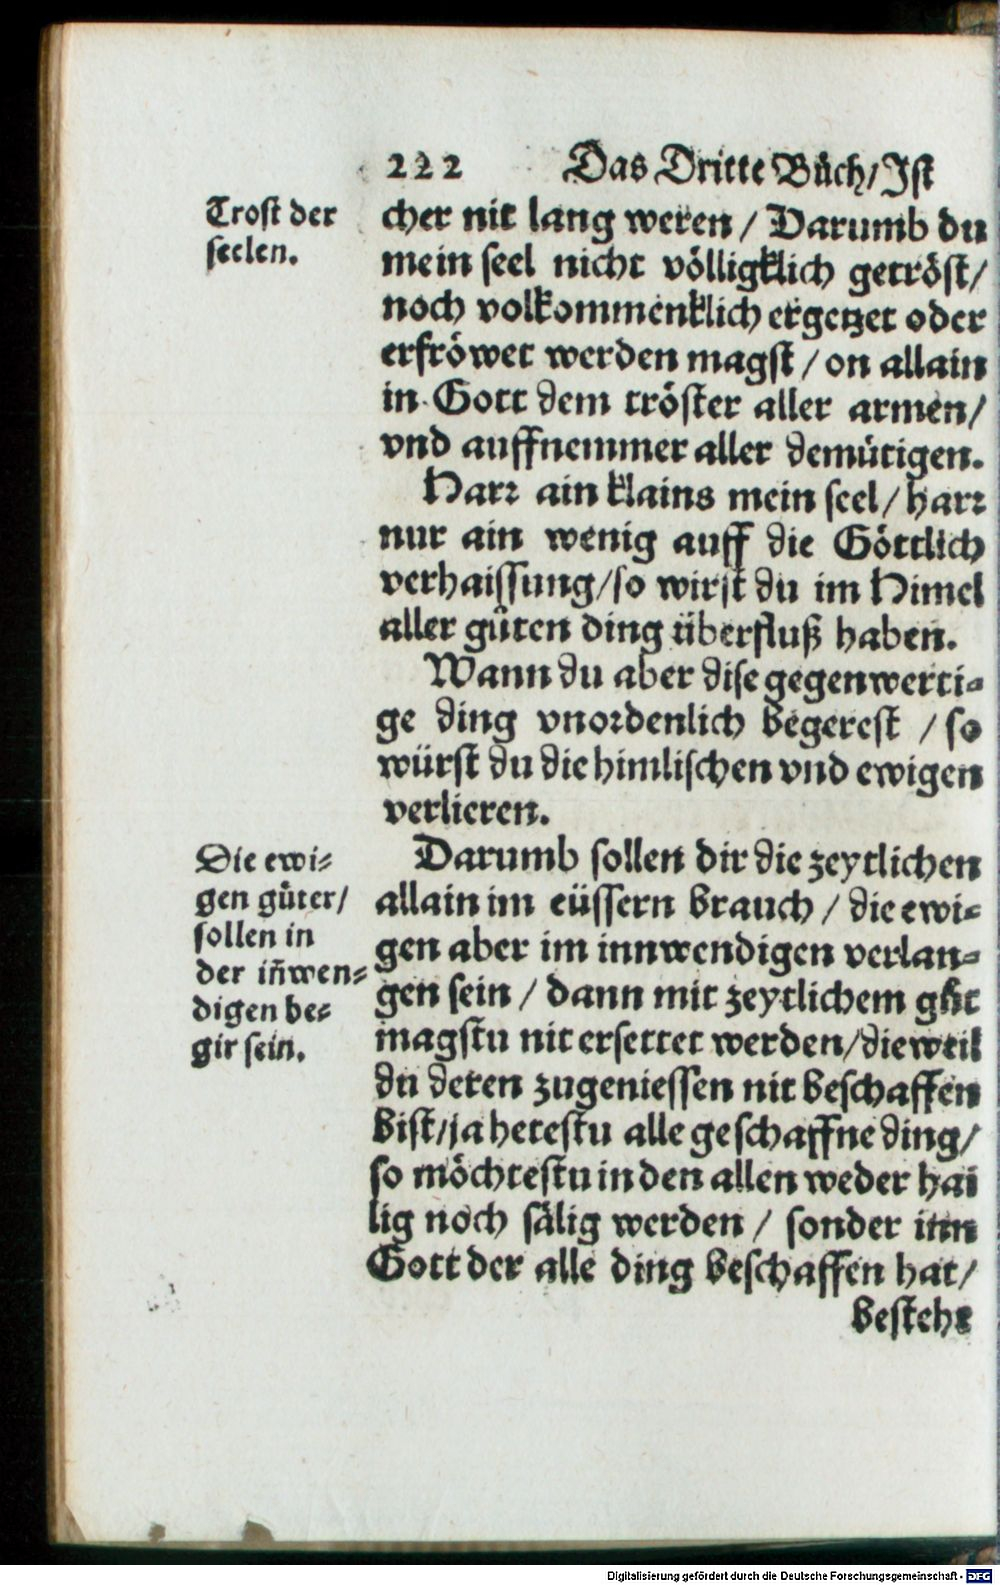 222 Das Dritte Bůch/ Ist
Trost der
seelen.
cher nit lang weren / Darumb du
mein seel nicht völligklich getröst/
noch volkommenklich ergetzet oder
erfröwet werden magst / on allain
in Gott dem tröster aller armen/
vnd auffnemmer aller demütigen.
Harr ain klains mein seel / harr
nur ain wenig auff die Göttlich
verhaissung/so wirst du im Himel
aller gůten ding überfluß haben.
Wann du aber dise gegenwerti-
ge ding vnordenlich begerest / so
würst du die himlischen vnd ewigen
verlieren.
Die ewi-
gen gůter/
sollen in
der iñwen-
digen be-
gir sein.
Darumb sollen dir die zeytlichen
allain im eüssern brauch / die ewi-
gen aber im innwendigen verlan-
gen sein / dann mit zeytlichem gůt
magstu nit ersettet werden/dieweil
du deren zugeniessen nit beschaffen
bist/ja hetestu alle geschaffne ding/
so möchtestu in den allen weder hai
lig noch sälig werden / sonder inn
Gott der alle ding beschaffen hat/
besteht
Digitalisierung gefördert durch die Deutsche Forschungsgemeinschaft - DFG